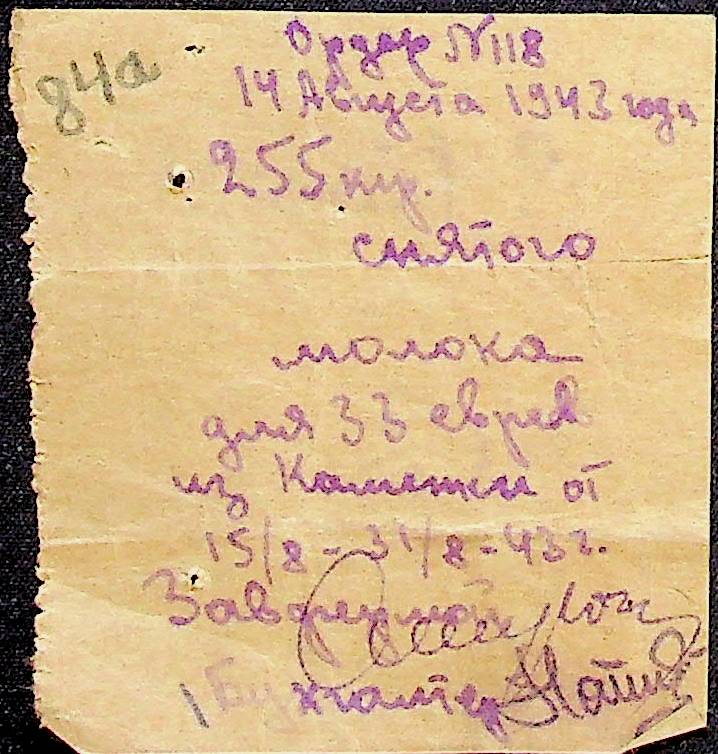 84а
Ордер N 118
14 Августа 1943 года
255 клгр.
снятого
молока
для 33 евреев
из Каменки от
15/8 - 31/8 - 43 г.
Заверенной
Бухгалтер